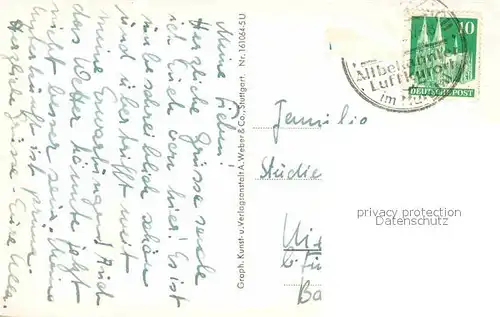 Meine Lieben!
Herzliche Grüsse sende
ich Euch von hier! Es ist
unbeschreiblich schön
und übertrifft weit
meine Erwartungen! Auch
das Wetter könnte jetzt
nicht besser sein. Meine
Unterkunft ist prima.
Herzliche Grüsse Eure
Graph. Kunst- u. Verlagsanstalt A. Weber & Co., Stuttgart. Nr. 161064.5U
10
DEUTSCHE POST
Altbekannter
Luftkurort
im
Familie
Studie
Ba
privacy protection
Datenschutz